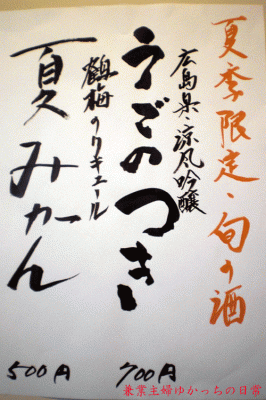 夏季限定、旬の酒
広島県、涼風吟醸
うごのつき
700円
鶴梅のリキュール
夏みかん
500円
兼業主婦ゆかっちの日常